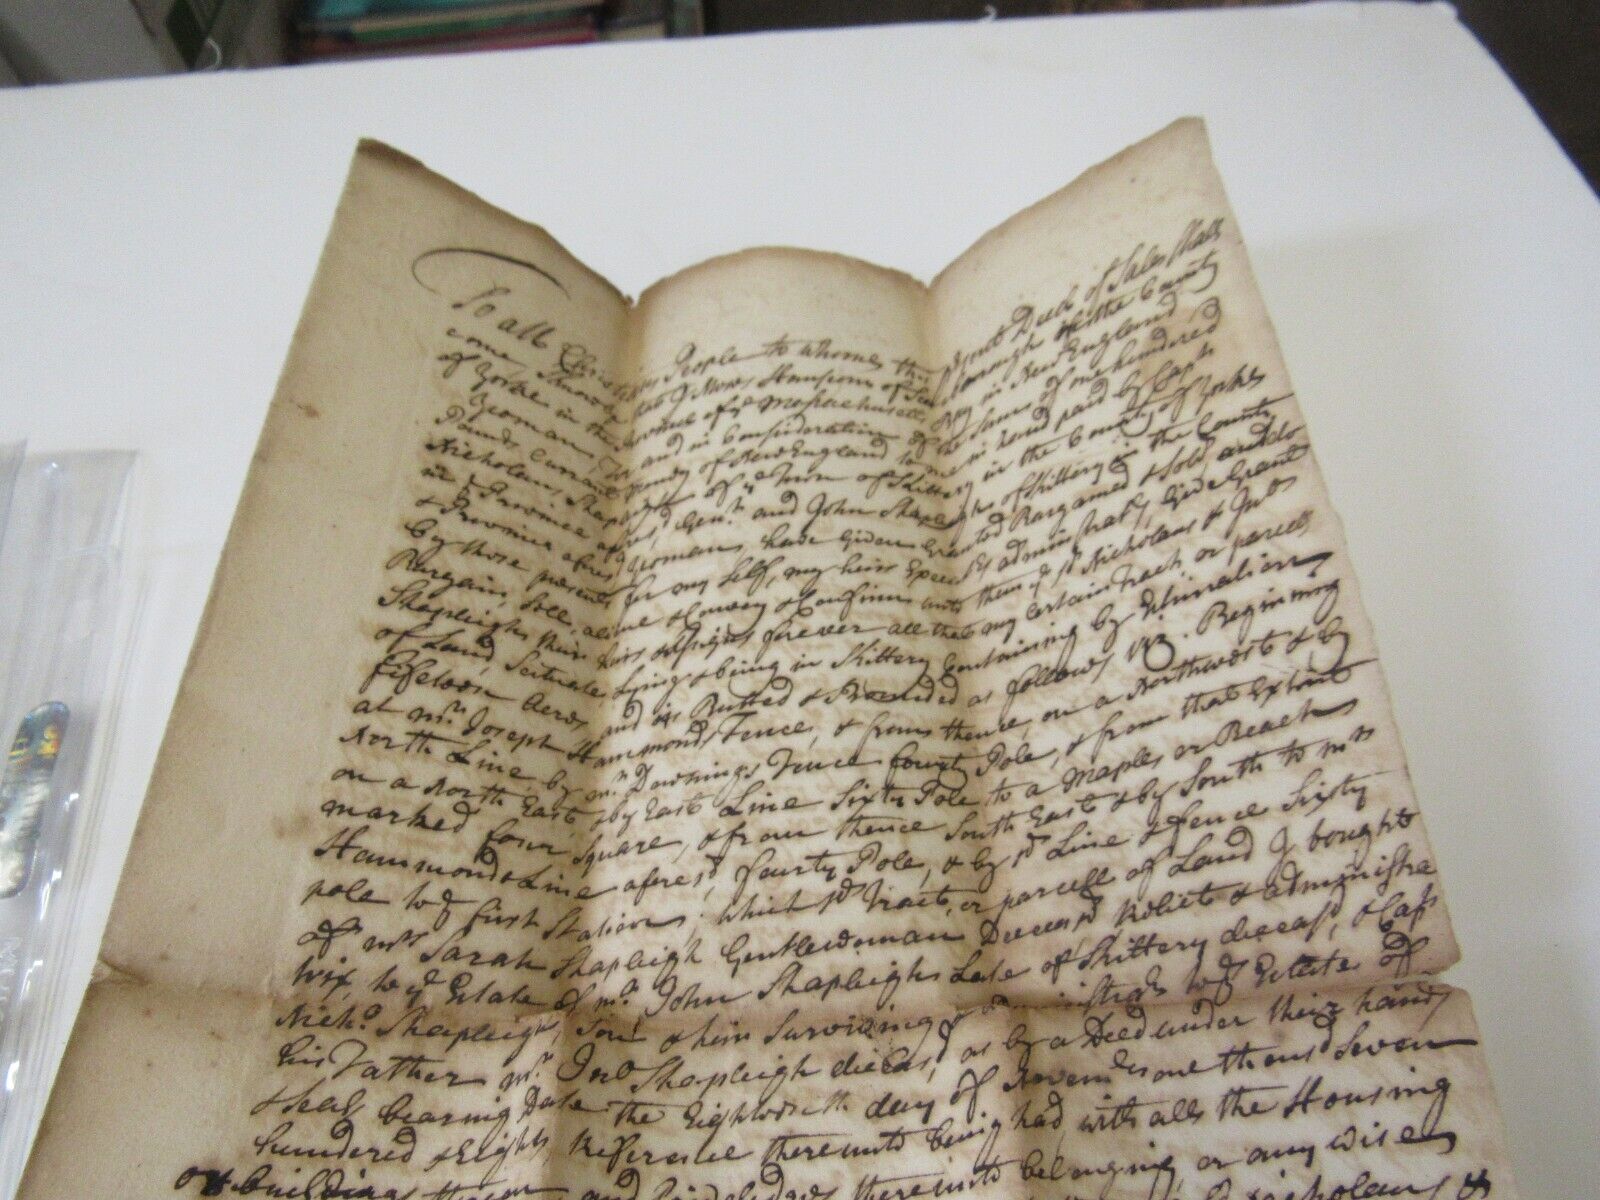 To all Christian People to whome this present Deed of Sales Shall
come Know ye that I Moses Hanscom of Scarborough In the County
of Yorke in the Province of ye Massachusetts Bay in New England
Yeoman For and in Consideration of the Sum of one hundered
Pounds Currant money of New England to me in hand paid by Capt
Nicholas Shapleigh of ye Town of Kittery in the County of Yorke
in ye Province afores,d Gent.n and John Shapleigh of Kittery in the County
& Province afores,d yeoman, have Given Granted Bargained & Sold, and do
by these presents for my Self, my heirs Execu.rs administra.rs, Give Grant
Bargain, Sell, aline & Convey & Confirm unto them ye s.d Nicholas & Jn.o
Shapleigh their heirs & assigns forever all that my certain tract or parcell
of Land, Scituate, Lying & being in Kittery Containing by Estimation
fifeteen Acres and is Butted & Bounded as follows, viz. Beginning
at m.r Joseph Hammonds Fence, & from thence, on a Northwest & by
North Line by m.r Downings Fence fourty Pole, & from that Extent
on a North East & by East Line Sixty Pole to a Maple or Beach
marked four Square, & from thence South East & by South to m.rs
Hammonds Line afores,d, fourty Pole, & by s.d Line & fence Sixty
pole to ye first Station; which s.d Tract, or parcell of Land I bought
of m.rs Sarah Shapleigh Gentlewoman Deceas,d, Relict & administra
trix, to ye Estate of m.r John Shapleigh Late of Kittery deceas,d, & Cap.t
Nich.o Shapleigh, Son & him Surviving & administra.r to ye Estate of
his Father m.r Jn.o Shapleigh deceas,d, as by a Deed under their hands
& Seals bearing Date the Eighteenth day of Novem.r one thous.d Seven
hundered & Eight, Reference thereunto being had, with all the Housing
or buildings thereon and priviledges thereunto belonging, or any wise
Nicholas